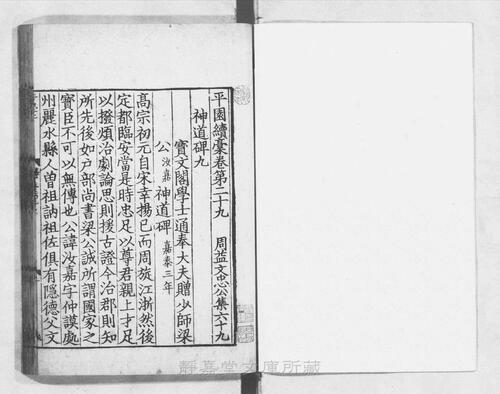 平園續稾卷第二十九　周益文忠公集六十九
神道碑九
寶文閣學士通奉大夫贈少師梁
公汝嘉神道碑嘉泰三年
髙宗初元自宋幸揚已而周旋江浙然後
定都臨安當是時忠足以尊君親上才足
以撥煩治劇論思則援古證今治郡則知
所先後如戸部尚書梁公誠所謂國家之
寶臣不可以無傳也公諱汝嘉字仲謨處
州麗水縣人曽祖訥祖佐俱有隱德父文
靜嘉堂文庫所藏